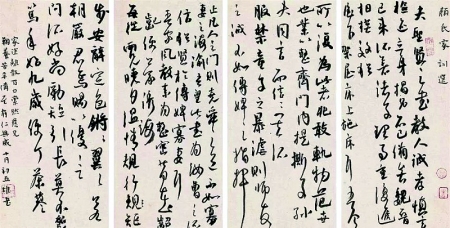 顏氏家訓選
夫聖賢之書教人誠孝慎言
檢迹立身揚名亦已備矣魏晉
已來所著諸子理重事複遞
相模斅猶
屋下架屋床上施床耳吾今
所以復為此者非敢軌物範世
也業以整齊門內提撕子孫
夫同言而信信其所親
服禁童子之暴謔則師友
之誡不如傅婢之指揮
止凡人之鬥鬩則堯舜之道不如寡
妻之誨諭吾望此書為汝曹之所
信猶賢於傅婢寡妻耳
吾家風教素為整密昔在齠
齔便蒙誨誘
每從兩兄曉夕溫凊規行矩
步安辭定色鏘鏘翼翼若
朝嚴君焉賜以優言
問所好尚勵短引長莫不懇
篤年始九歲便丁荼蓼
家塗離散百口索然慈兄
鞠養苦辛備至有仁無威月初五書